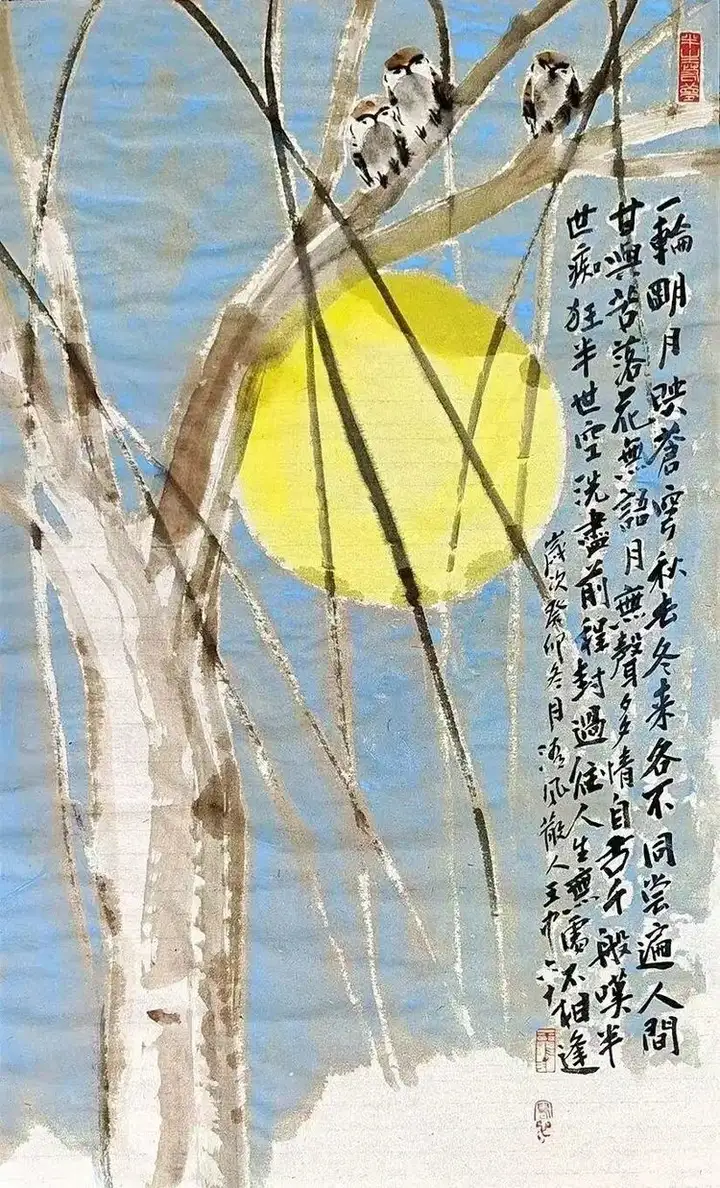 一輪明月映蒼穹秋去冬来各不同尝遍人間
甘與苦落花無語月無聲多情自古千般嘆半
世痴狂半世空洗盡前程封過往人生無處不相逢
歲次癸卯冬月清風散人王中六十